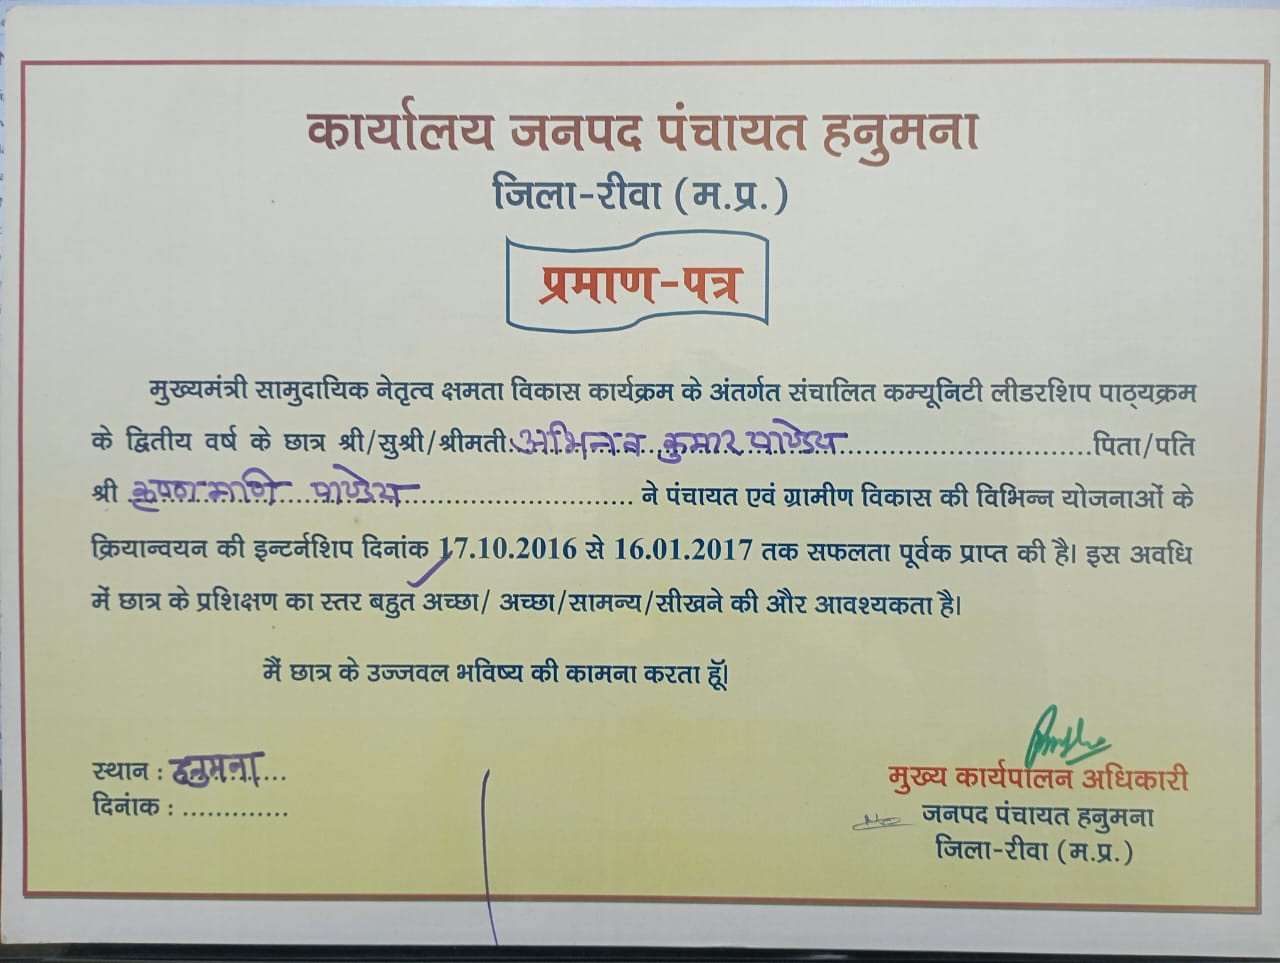 कार्यालय जनपद पंचायत हनुमना
जिला-रीवा (म.प्र.)
प्रमाण-पत्र
मुख्यमंत्री सामुदायिक नेतृत्व क्षमता विकास कार्यक्रम के अंतर्गत संचालित कम्यूनिटी लीडरशिप पाठ्यक्रम
के द्वितीय वर्ष के छात्र श्री/सुश्री/श्रीमती.अभिनव कुमार पाण्डेय..............................पिता/पति
श्री कृष्ण मणि पाण्डेय............................ ने पंचायत एवं ग्रामीण विकास की विभिन्न योजनाओं के
क्रियान्वयन की इन्टर्नशिप दिनांक 17.10.2016 से 16.01.2017 तक सफलता पूर्वक प्राप्त की है। इस अवधि
में छात्र के प्रशिक्षण का स्तर बहुत अच्छा/ अच्छा/सामन्य/सीखने की और आवश्यकता है।
मैं छात्र के उज्जवल भविष्य की कामना करता हूँ।
स्थान : हनुमना...
दिनांक : .............
मुख्य कार्यपालन अधिकारी
जनपद पंचायत हनुमना
जिला-रीवा (म.प्र.)